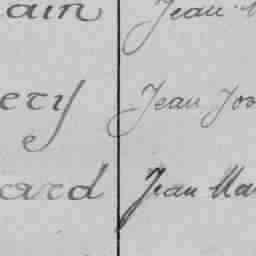 ain Jean
ery Jean Jos
ard Jean Ma